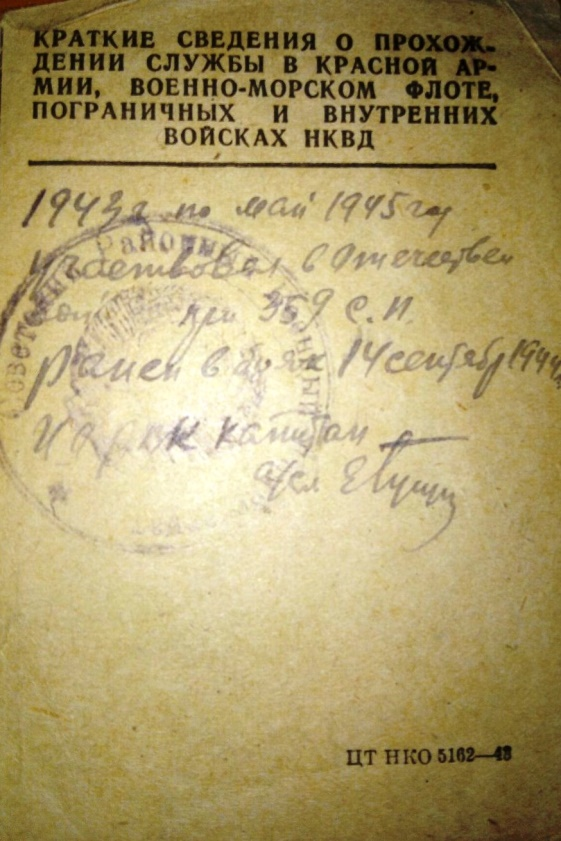 КРАТКИЕ СВЕДЕНИЯ О ПРОХОЖ-
ДЕНИИ СЛУЖБЫ В КРАСНОЙ АР-
МИИ, ВОЕННО-МОРСКОМ ФЛОТЕ,
ПОГРАНИЧНЫХ И ВНУТРЕННИХ
ВОЙСКАХ НКВД
1943 г по май 1945 году
Участвовал в Отечествен
при 359 С.П.
Ранен в боях 14 сентябр 1944
капитан
ЦТ НКО 5162—43